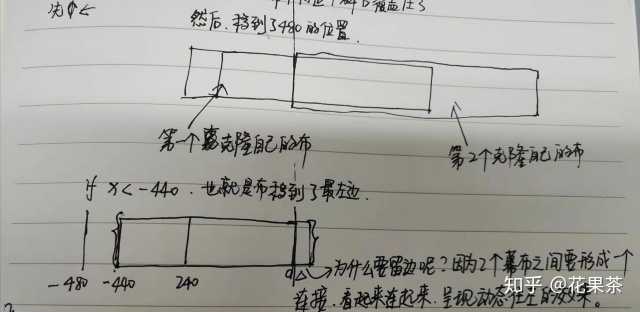 先个←
然后.移到了480的位置.
第一个幕克隆自己的布
第2个克隆自己的布
if x<-440.也就是布移到了最左边.
-480 -440 240 0
为什么要留边呢?因为2个幕布之间要形成一个
连接.看起来连起来.呈现动态往左的效果。
知乎 @花果茶